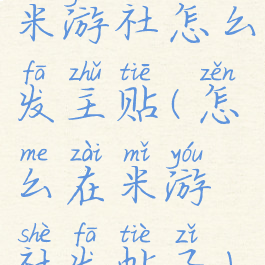 米游社怎么
fā zhǔ tiē zěn
发主贴(怎
me zài mǐ yóu
么在米游
shè fā tiè zǐ
社发帖子)